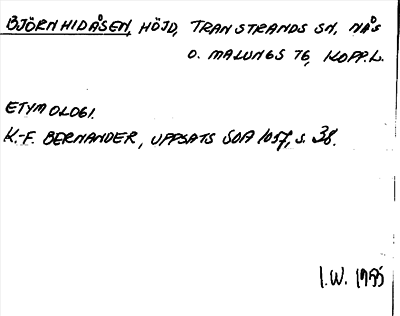 BJÖRNHIDÅSEN, HÖJD, TRANSTRANDS SN, NÅS
O. MALUNGS TG, KOPP.L.
ETYMOLOGI.
K.-F. BERNANDER, UPPSATS SOA 1057, S. 38.
I.W. 1955